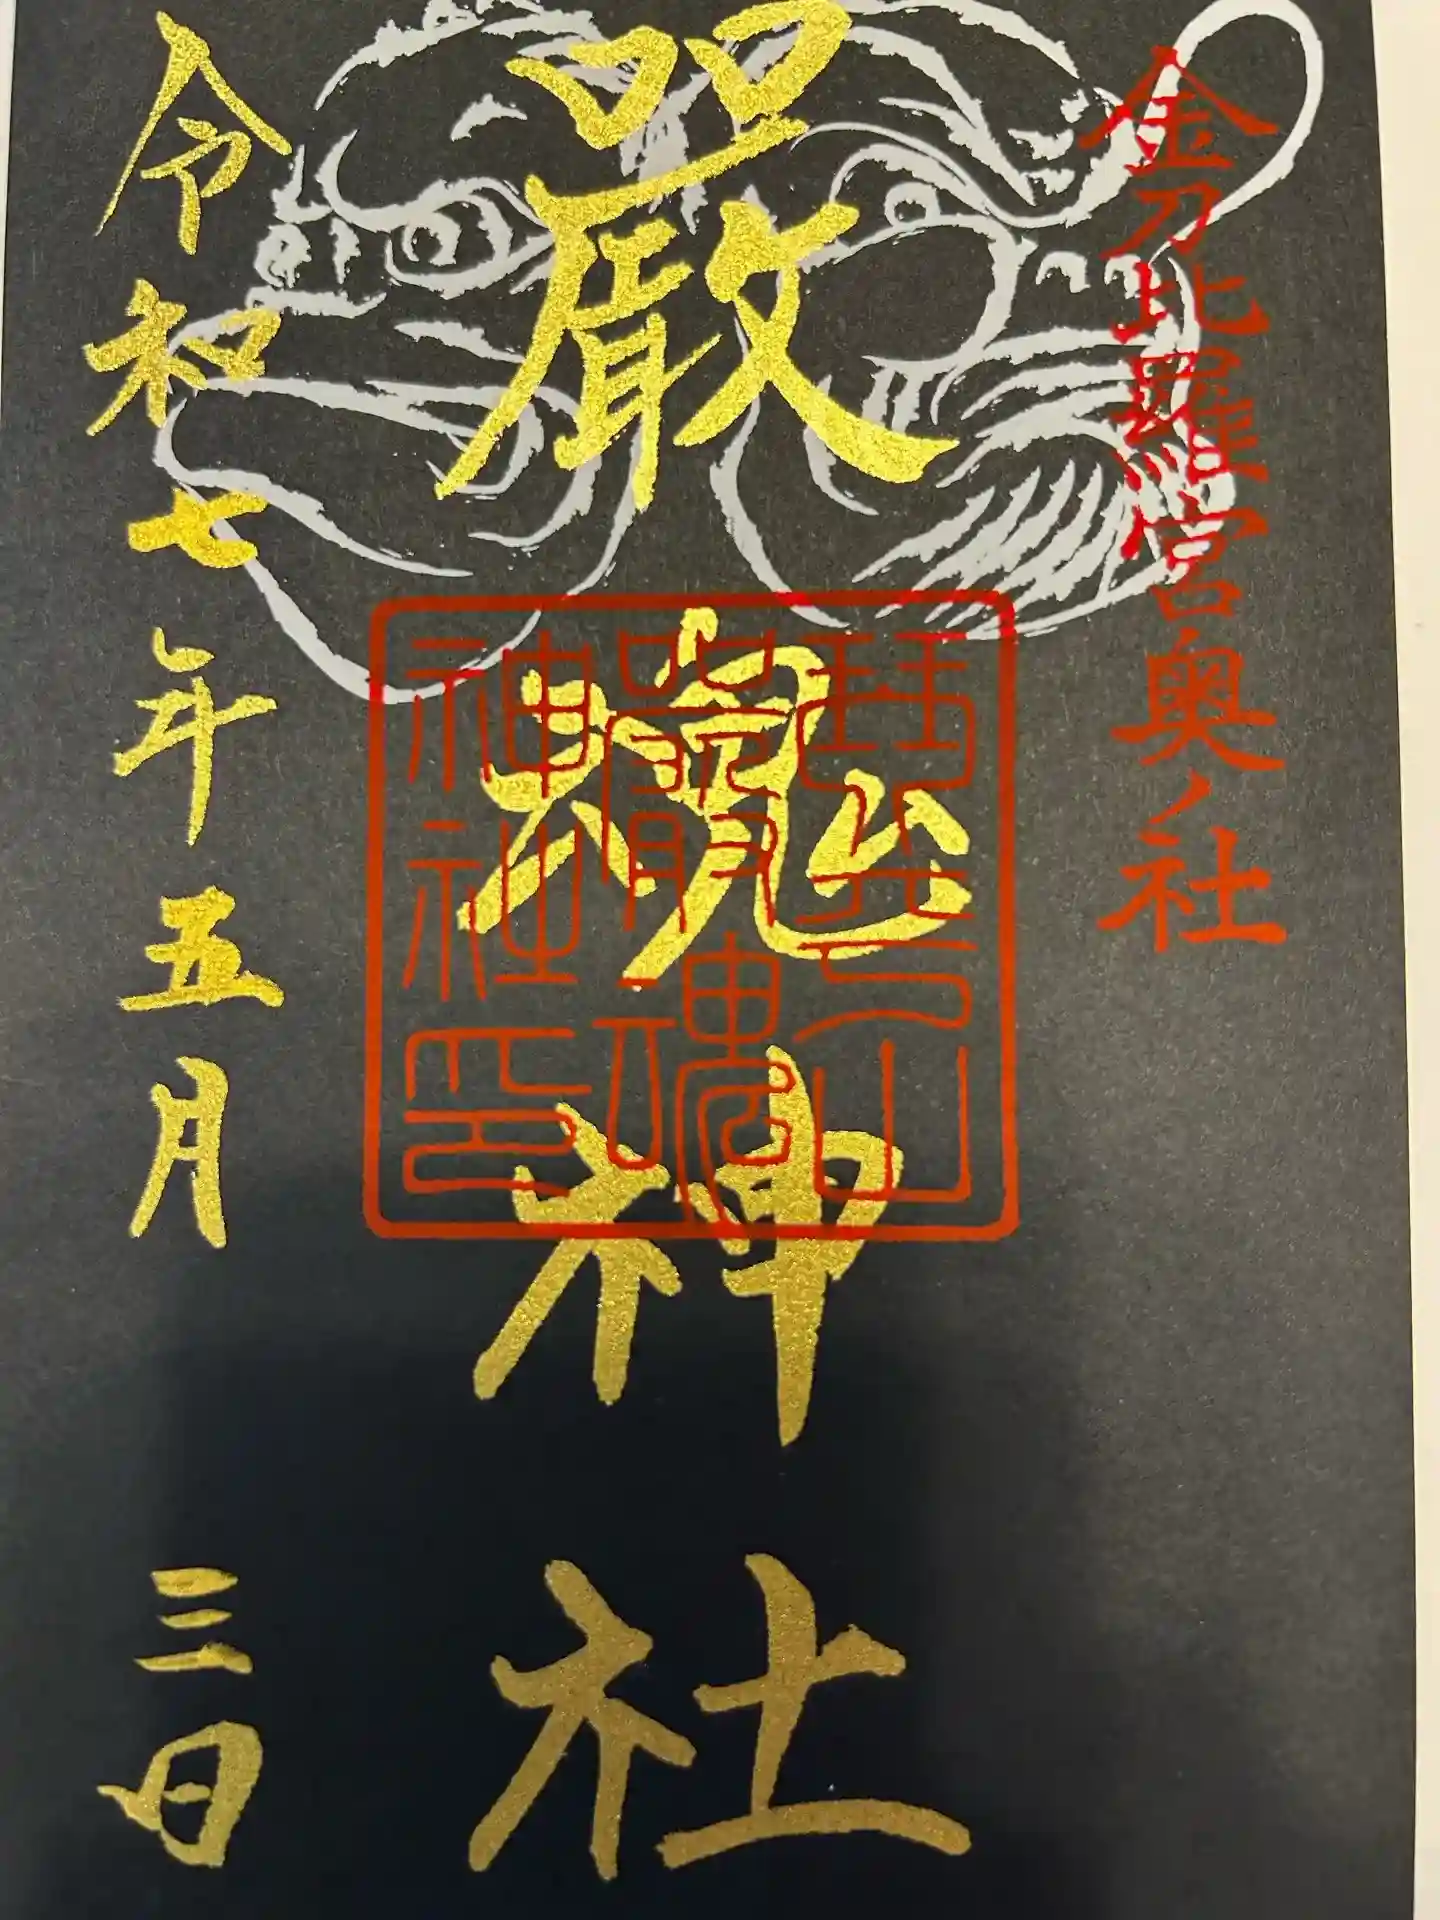 金刀比羅宮奥ノ社
嚴魂神社
琴平山
嚴魂
神社印
令和七年五月三日